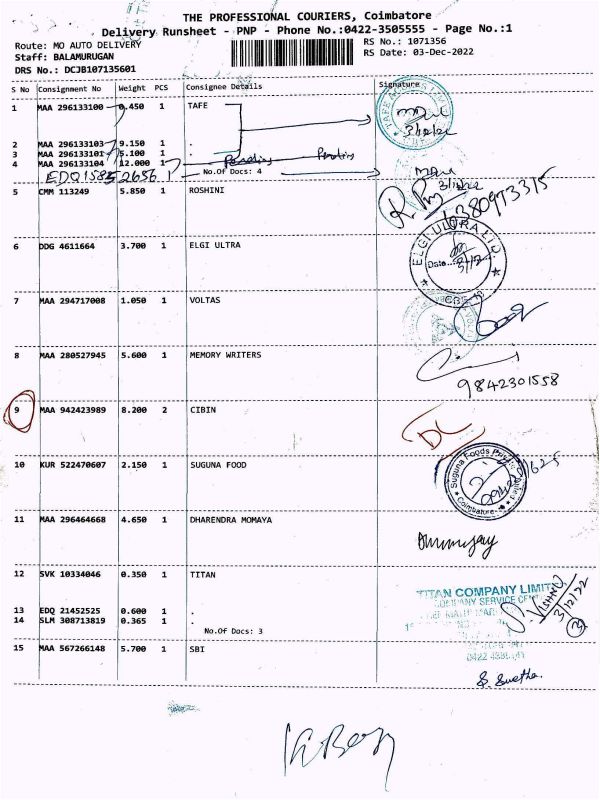 THE PROFESSIONAL COURIERS, Coimbatore
Delivery Runsheet - PNP - Phone No.:0422-3505555 - Page No.:1
Route: MO AUTO DELIVERY RS No.: 1071356
Staff: BALAMURUGAN RS Date: 03-Dec-2022
DRS No.: DCJB107135601
S No Consignment No Weight PCS Consignee Details Signature
1 MAA 296133100 0.450 1 TAFE
3/12/22
2 MAA 296133103 9.150 1 .
3 MAA 296133101 5.100 1 .
4 MAA 296133104 12.000 1 Pending Pending
No.Of Docs: 4
3/12/22
5 CMM 113249 5.850 1 ROSHINI
6 DDG 4611664 3.700 1 ELGI ULTRA
ELGI ULTRA
Date
CBE
7 MAA 294717008 1.050 1 VOLTAS
8 MAA 280527945 5.600 1 MEMORY WRITERS
9842301558
9 MAA 942423989 8.200 2 CIBIN
DC
10 KUR 522470607 2.150 1 SUGUNA FOOD
Suguna Foods Private Limited
Coimbatore
11 MAA 296464668 4.650 1 DHARENDRA MOMAYA
12 SVK 10334046 0.350 1 TITAN
TITAN COMPANY LIMITED
COMPANY SERVICE
S. VISHNU
3/12/22
3
13 EDQ 21452525 0.600 1 .
14 SLM 308713819 0.365 1 .
No.Of Docs: 3
15 MAA 567266148 5.700 1 SBI
S. Swetha.